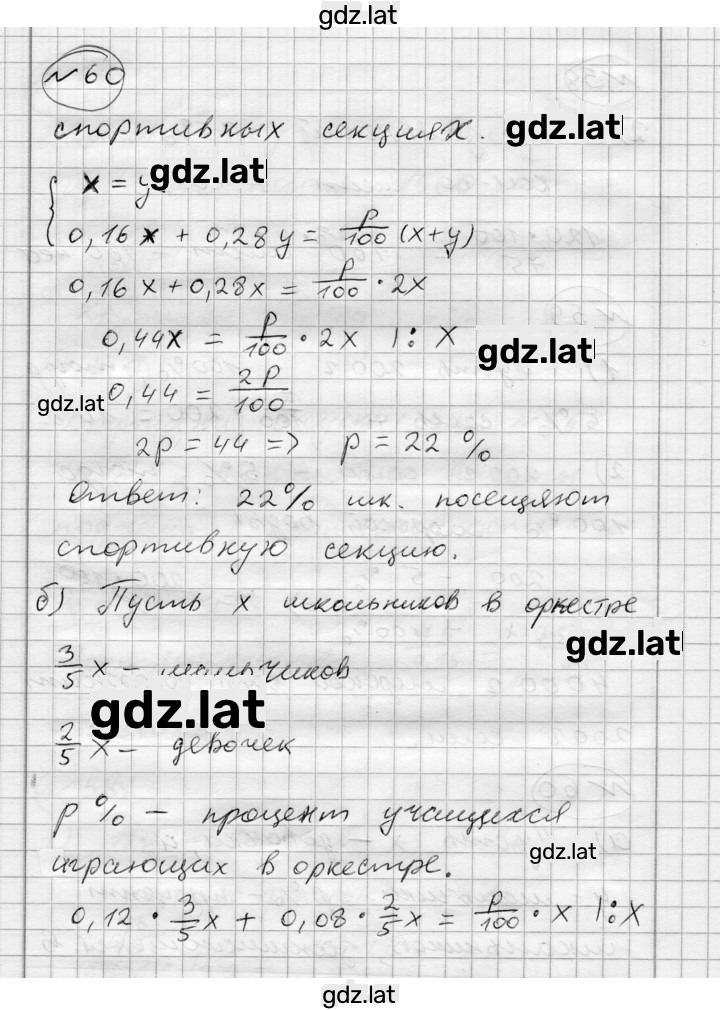 gdz.lat
№60
спортивных секциях. gdz.lat
{ x = y gdz.lat
0,16x + 0,28y = p/100 (x+y)
0,16x + 0,28x = p/100 · 2x
0,44x = p/100 · 2x |: x gdz.lat
gdz.lat 0,44 = 2p/100
2p = 44 => p = 22 %
Ответ: 22% шк. посещяют
спортивную секцию.
б) Пусть x школьников в оркестре
gdz.lat
3/5 x – мальчиков
gdz.lat
2/5 x – девочек
p % – процент учащихся
играющих в оркестре. gdz.lat
0,12 · 3/5 x + 0,08 · 2/5 x = p/100 · x |: x
gdz.lat